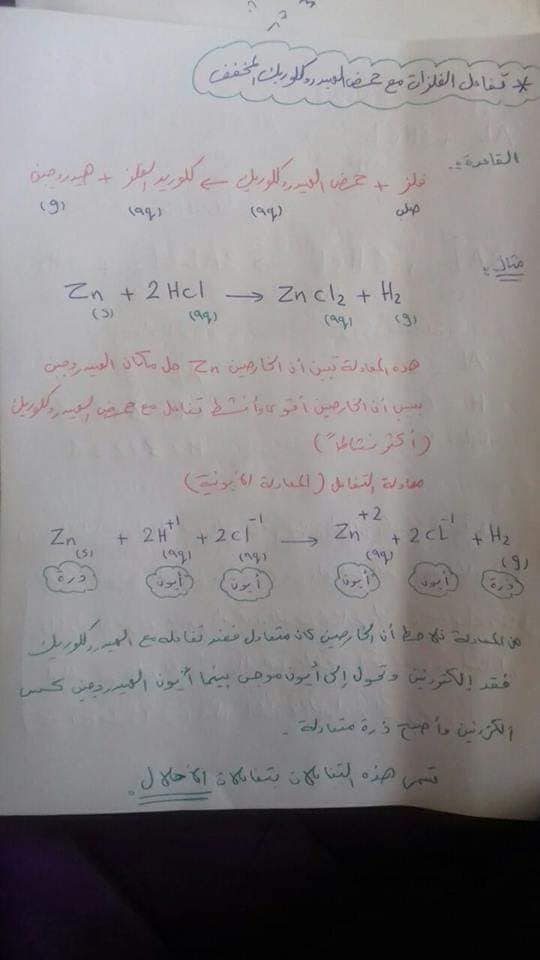 * تفاعل الفلزات مع حمض الهيدروكلوريك المخفف
القاعدة:
فلز + حمض الهيدروكلوريك ← كلوريد الفلز + هيدروجين
صلب (aq) (aq) (g)
مثال:
Zn + 2HCl → ZnCl2 + H2
(s) (aq) (aq) (g)
هذه المعادلة تبين أن الخارصين Zn حل مكان الهيدروجين
بسبب أن الخارصين أقوى وأنشط تفاعل مع حمض الهيدروكلوريك
(أكثر نشاطاً)
معادلة التفاعل (المعادلة الأيونية)
Zn + 2H+1 + 2Cl-1 → Zn+2 + 2Cl-1 + H2
(s) (aq) (aq) (aq) (g)
ذرة أيون أيون أيون أيون ذرة
من المعادلة نلاحظ أن الخارصين كان متعادل فعند تفاعله مع الهيدروكلوريك
فقد إلكترونين وتحول إلى أيون موجب بينما أيون الهيدروجين كسب
الكترونين وأصبح ذرة متعادلة .
تسمى هذه التفاعلات بتفاعلات الإحلال .